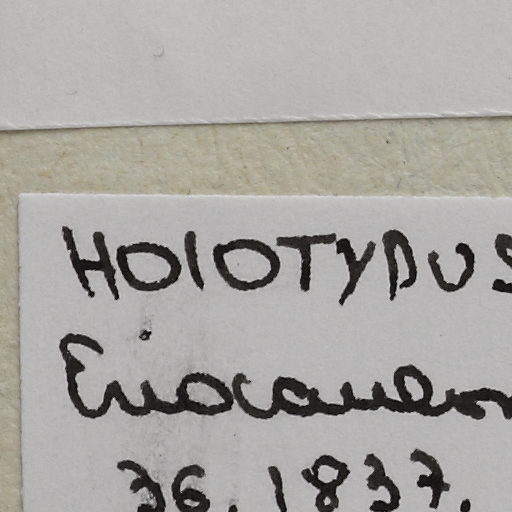 HOLOTYPUS
Eriocaulon
36, 1837.